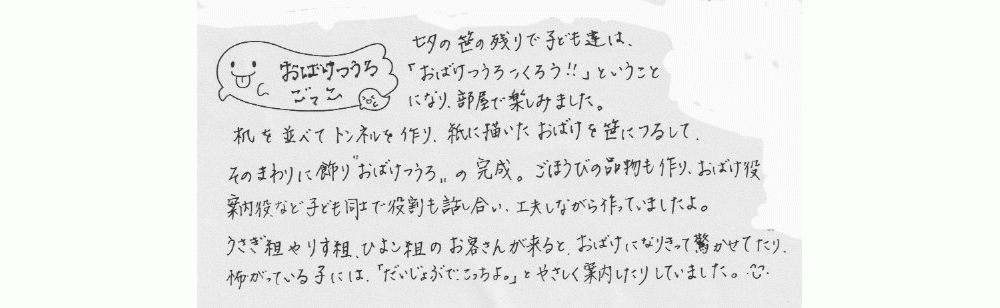 おばけつうろ
ごっこ
七夕の笹の残りで子ども達は、
「おばけつうろつくろう!!」ということ
になり、部屋で楽しみました。
机を並べてトンネルを作り、紙に描いたおばけを笹につるして、
そのまわりに飾り"おばけつうろ"の完成。ごほうびの品物も作り、おばけ役
案内役など子ども同士で役割も話し合い、工夫しながら作っていましたよ。
うさぎ組やりす組、ひよこ組のお客さんが来ると、おばけになりきって驚かせてたり、
怖がっている子には、「だいじょぶで、こっちよ。」とやさしく案内したりしていました。